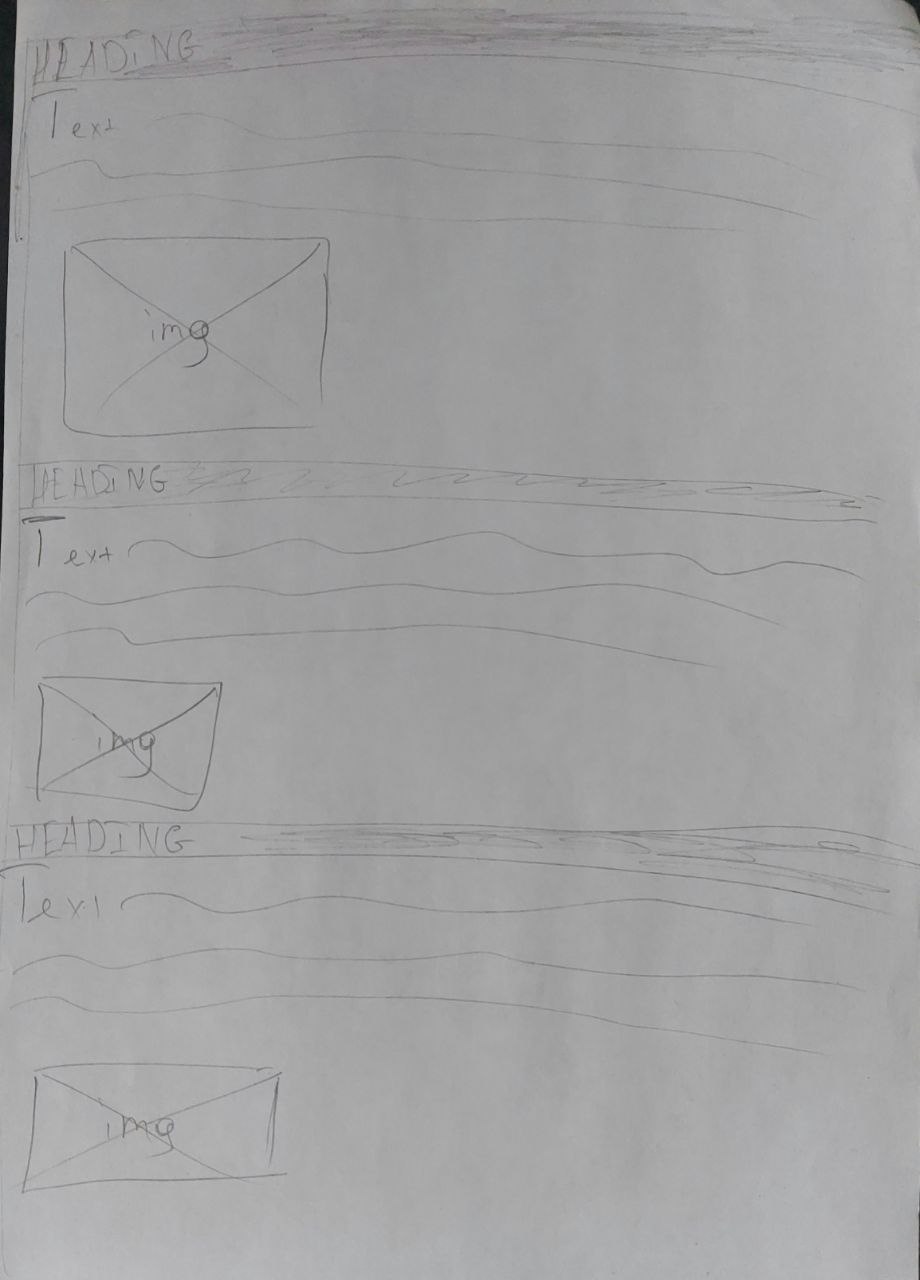 HEADING
Text
img
HEADING
Text
img
HEADING
Text
img